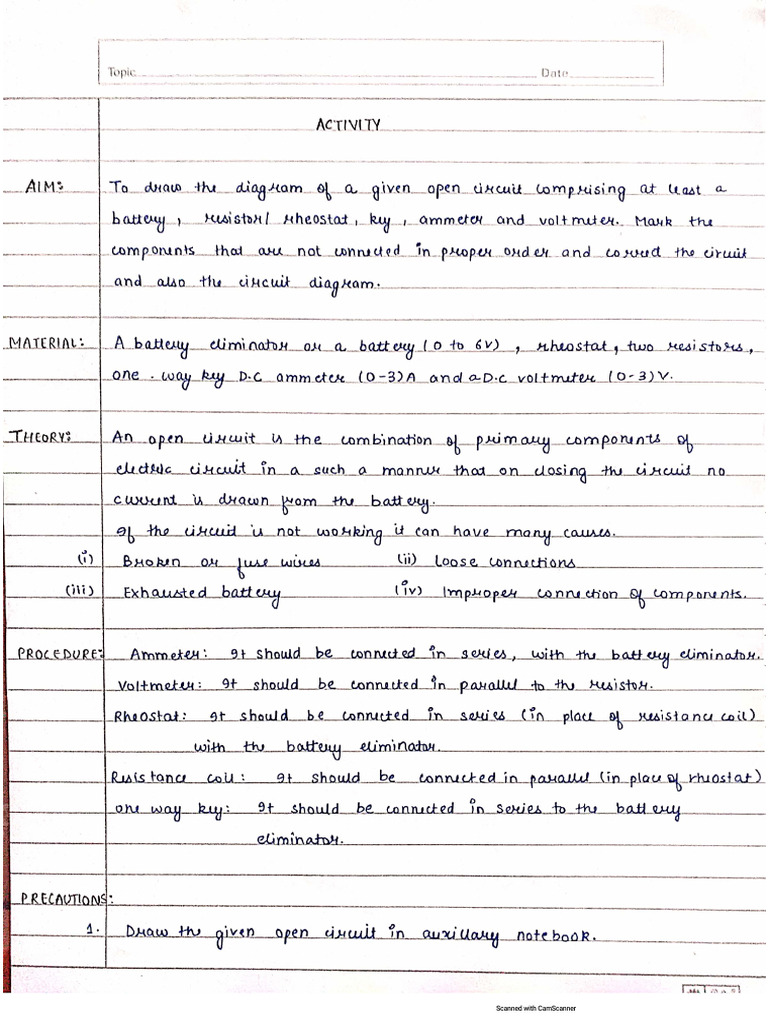 Topic Date
ACTIVITY
AIM: To draw the diagram of a given open circuit comprising at least a
battery, resistor/ rheostat, key, ammeter and voltmeter. Mark the
components that are not connected in proper order and correct the circuit
and also the circuit diagram.
MATERIAL: A battery eliminator or a battery (0 to 6V), rheostat, two resistors,
one-way key D.C ammeter (0-3)A and a D.C voltmeter (0-3)V.
THEORY: An open circuit is the combination of primary components of
electric circuit in a such a manner that on closing the circuit no
current is drawn from the battery.
If the circuit is not working it can have many causes.
(i) Broken or fuse wires (ii) Loose connections
(iii) Exhausted battery (iv) Improper connection of components.
PROCEDURE: Ammeter: It should be connected in series, with the battery eliminator.
Voltmeter: It should be connected in parallel to the resistor.
Rheostat: It should be connected in series (in place of resistance coil)
with the battery eliminator.
Resistance coil: It should be connected in parallel (in place of rheostat)
one way key: It should be connected in series to the battery
eliminator.
PRECAUTIONS:
1. Draw the given open circuit in auxillary notebook.
Scanned with CamScanner